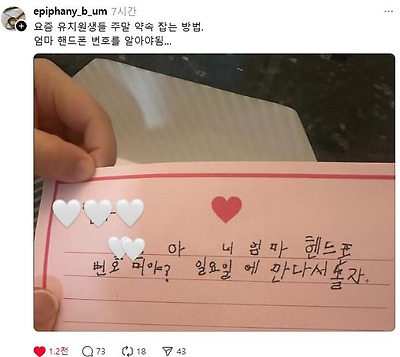 epiphany_b_um 7시간
요즘 유치원생들 주말 약속 잡는 방법.
엄마 핸드폰 번호를 알아야됨...
아 니 엄마 핸드폰
번호 머야? 일요일 에 만나서 놀자.
1.2천 73 18 43